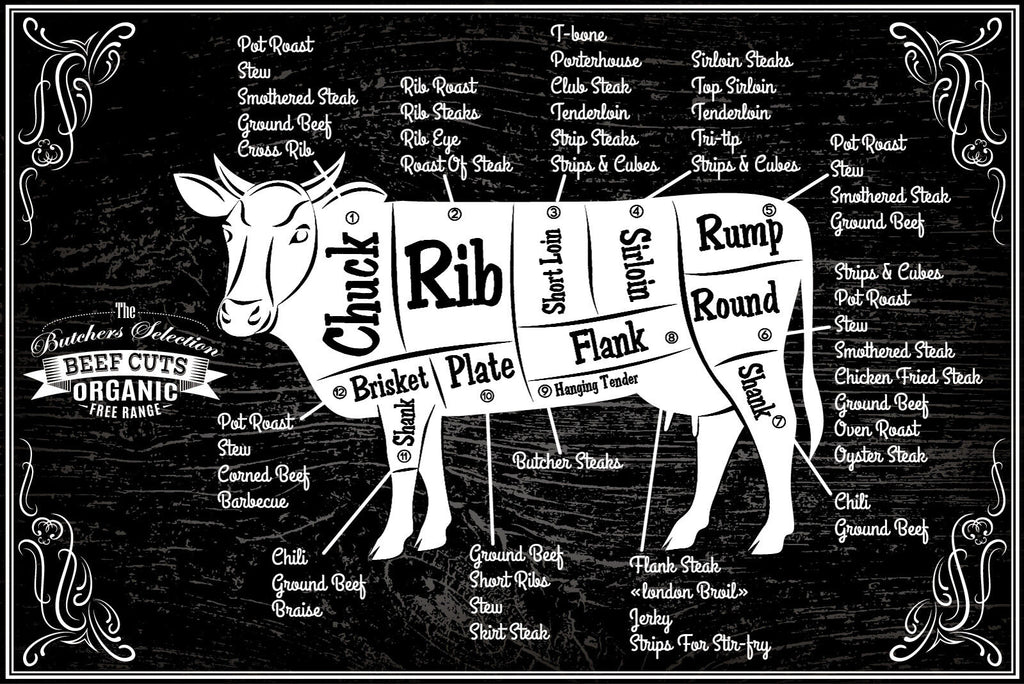 T-bone
Porterhouse
Club Steak
Tenderloin
Strip Steaks
Strips & Cubes
Pot Roast
Stew
Smothered Steak
Ground Beef
Cross Rib
Rib Roast
Rib Steaks
Rib Eye
Roast Of Steak
Sirloin Steaks
Top Sirloin
Tenderloin
Tri-tip
Strips & Cubes
Pot Roast
Stew
Smothered Steak
Ground Beef
1
Chuck
2
Rib
3
Short Loin
4
Sirloin
5
Rump
Round
6
Strips & Cubes
Pot Roast
Stew
Smothered Steak
Chicken Fried Steak
Ground Beef
Oven Roast
Oyster Steak
The
Butchers Selection
BEEF CUTS
ORGANIC
FREE RANGE
Flank
8
12
Brisket
Plate
10
9
Hanging Tender
Shank
7
Shank
11
Pot Roast
Stew
Corned Beef
Barbecue
Butcher Steaks
Chili
Ground Beef
Chili
Ground Beef
Braise
Ground Beef
Short Ribs
Stew
Skirt Steak
Flank Steak
«london Broil»
Jerky
Strips For Stir-fry